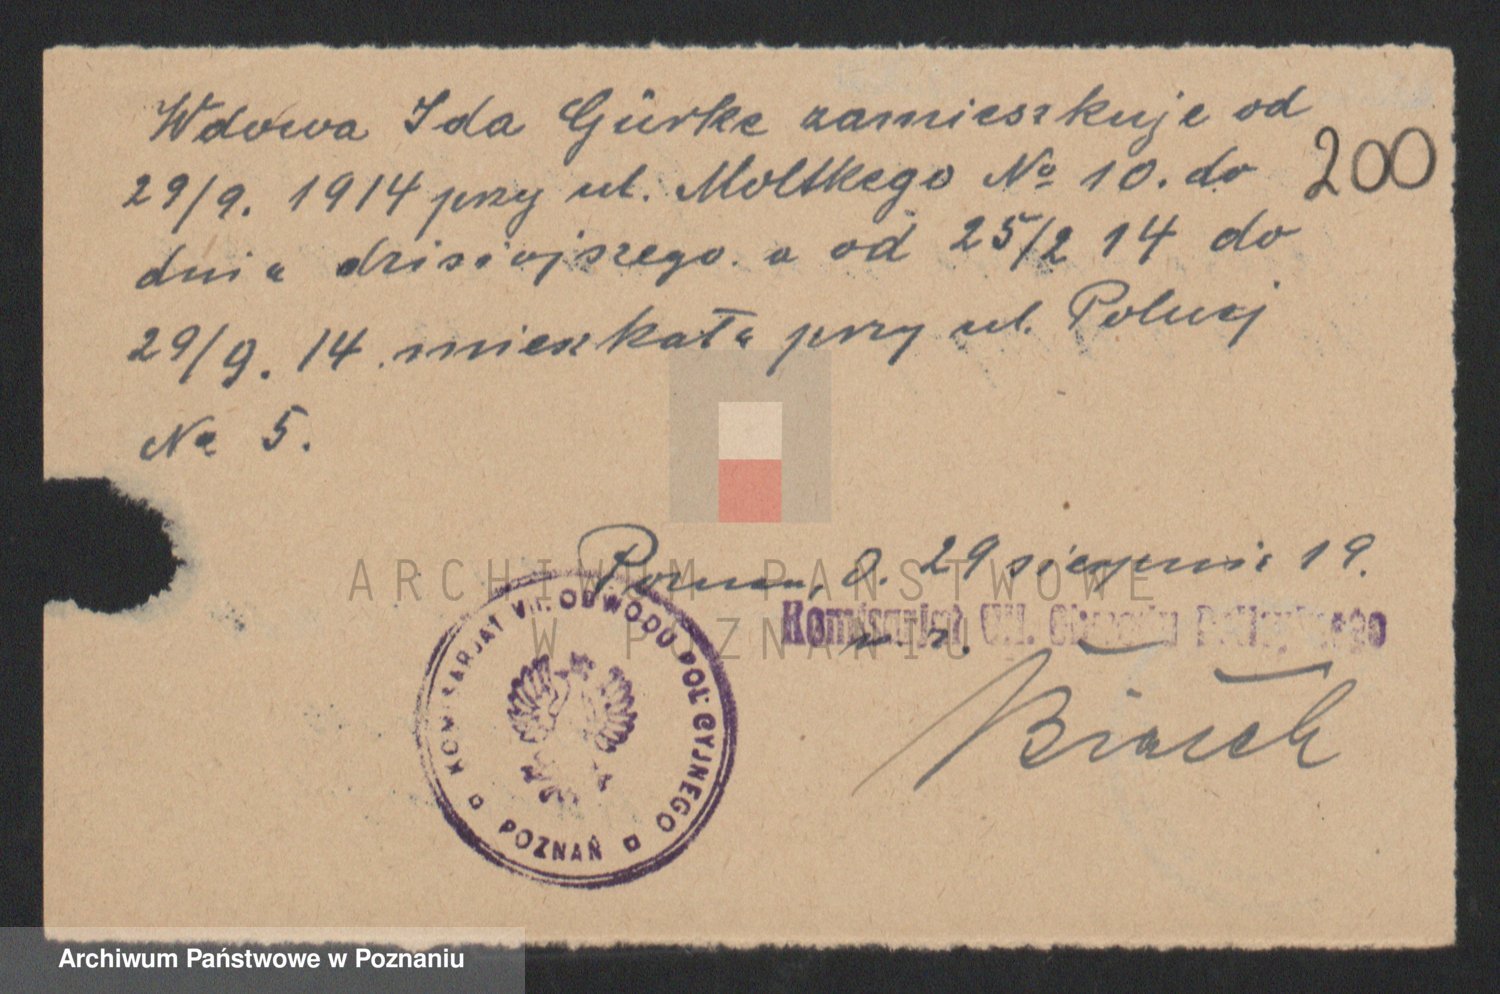 Wdowa Ida Gürke zamieszkuje od
29/9. 1914 przy ul. Moltkego No 10. do
200
dnia dzisiejszego a od 25/2 14 do
29/9. 14 mieszkała przy ul. Polnej
No 5.
Poznań, d. 29 sierpnia 19.
Komisarjat VII. Obwodu Policyjnego
KOMISARJAT VII. OBWODU POLICYJNEGO
POZNAŃ
ARCHIWUM PAŃSTWOWE
W POZNANIU
Archiwum Państwowe w Poznaniu